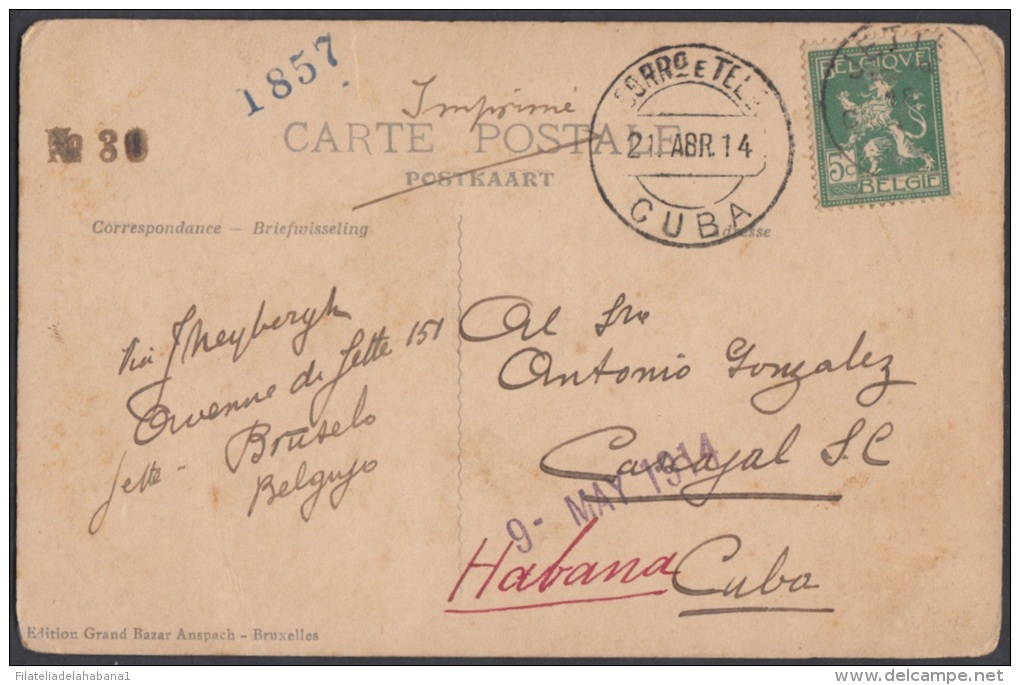 1857
No 30
Imprimé
CARTE POSTALE
POSTKAART
CORRO E TEL
21.ABR.14
CUBA
BELGIQUE
5c
BELGIE
Correspondance – Briefwisseling
Adresse
Via J Heybergh
Avenue di Jette 151
Jette - Bruselo
Belgujo
Al Sro
Antonio Gonzalez
Cascajal S.C
9- MAY 1914
Habana Cuba
Edition Grand Bazar Anspach - Bruxelles
Filateliadelahabana1
delcampe.net